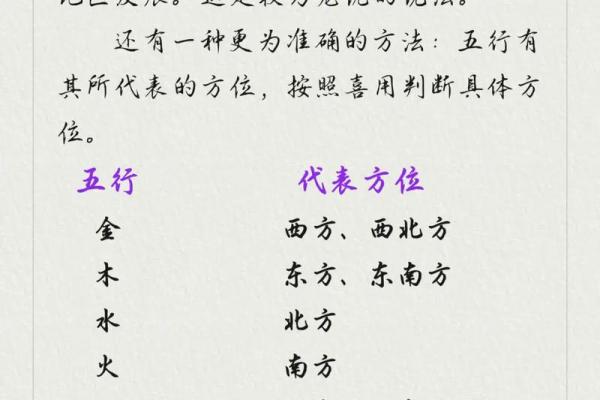 还有一种更为准确的方法：五行有
其所代表的方位，按照喜用判断具体方
位。
五行 代表方位
金 西方、西北方
木 东方、东南方
水 北方
火 南方